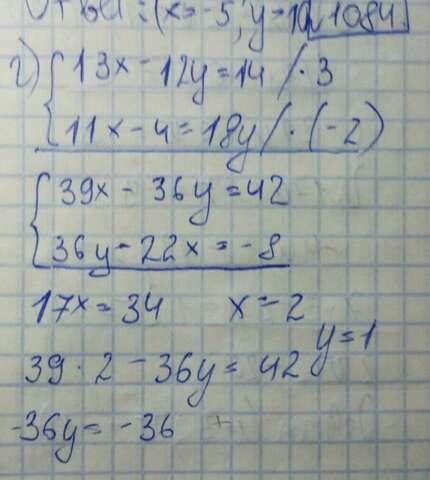 (x=-5; y=10 1084.
г) { 13x - 12y = 14 / · 3
11x - 4 = 18y / · (-2)
{ 39x - 36y = 42
36y - 22x = -8
17x = 34 x = 2
39 · 2 - 36y = 42 y = 1
-36y = -36